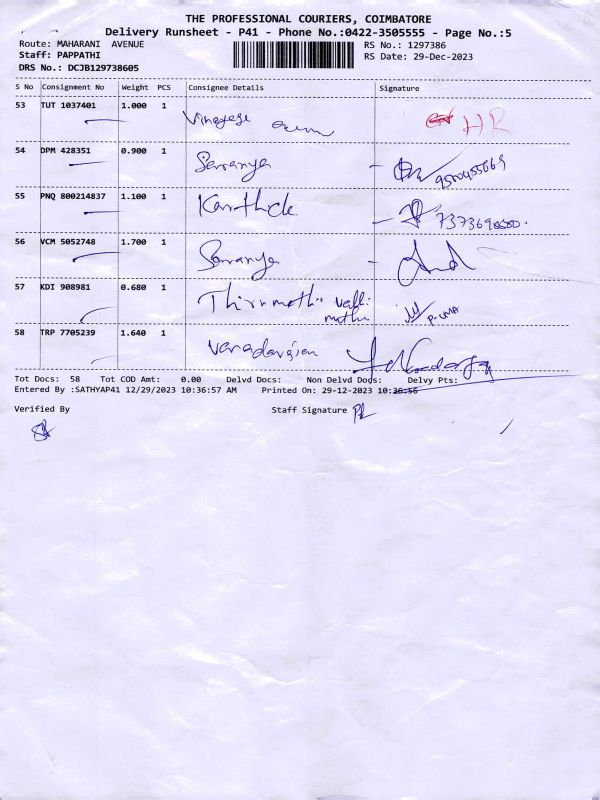 THE PROFESSIONAL COURIERS, COIMBATORE
Delivery Runsheet - P41 - Phone No.:0422-3505555 - Page No.:5
Route: MAHARANI AVENUE
RS No.: 1297386
Staff: PAPPATHI
RS Date: 29-Dec-2023
DRS No.: DCJB129738605
S No Consignment No Weight PCS Consignee Details Signature
53 TUT 1037401 1.000 1 HR
54 DPM 428351 0.900 1 Saranya
55 PNQ 800214837 1.100 1 Karthick
56 VCM 5052748 1.700 1 Saranya
57 KDI 908981 0.680 1 P. UMA
58 TRP 7705239 1.640 1 Varadarajan
Tot Docs: 58 Tot COD Amt: 0.00 Delvd Docs: Non Delvd Docs: Delvy Pts:
Entered By :SATHYAP41 12/29/2023 10:36:57 AM Printed On: 29-12-2023 10:36:56
Verified By Staff Signature